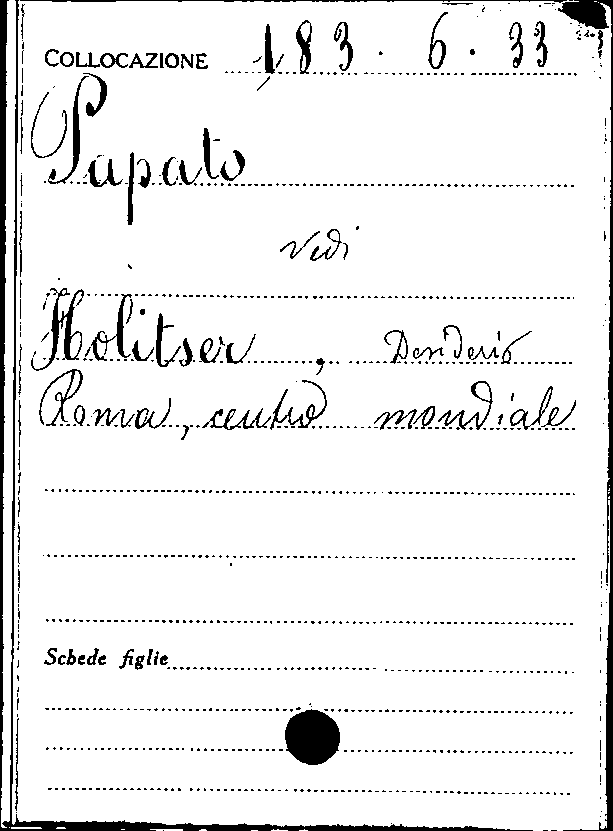 COLLOCAZIONE 183.6.33
Papato
Vedi
Holitser, Desiderio
Roma, centro mondiale
Schede figlie